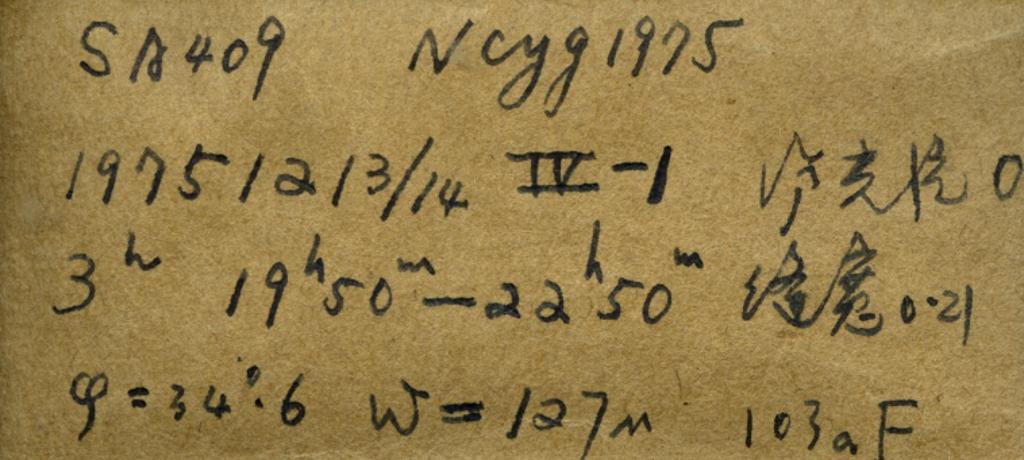 SA409 N Cyg 1975
1975 12 13/14 IV-1 0
3ʰ 19ʰ50ᵐ-22ʰ50ᵐ 缝宽 0.21
φ=34°.6 W=127μ 103aF